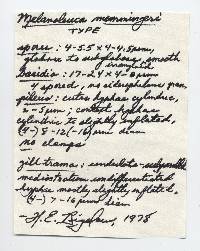 Melanoleuca memmingeri
TYPE
spores: 4-5.5 x 4-4.5µm,
globose to subglobose, smooth
inamyloid
basidia: 17-24 x 4-8µm
4 spored, no siderophilous gran.
pileus: cutis hyphae cylindric,
2-5µm; context hyphae
cylindric to slightly inflated,
(4-) 8-12(-16)µm diam
no clamps
gill trama: undulate-subparallel
mediostratum undifferentiated
hyphae mostly slightly inflated,
(4-) 7-16µm diam
H.E. Bigelow, 1978